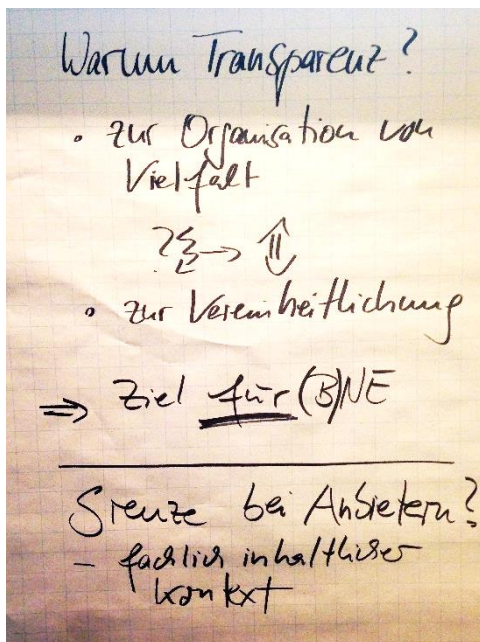 Warum Transparenz?
• zur Organisation von
Vielfalt
• zur Vereinheitlichung
⇒ Ziel für (B)NE
Grenze bei Anbietern?
- fachlich inhaltlicher
Kontext